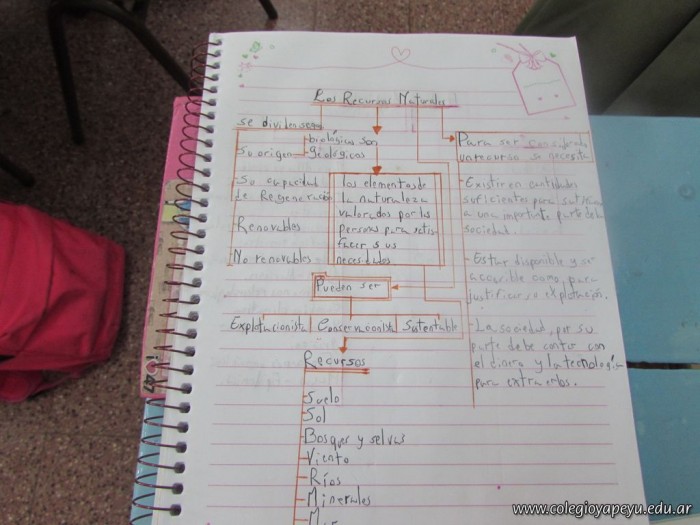 Los Recursos Naturales
se dividen segun
Su origen
biológicos son
geológicos
Su capacidad
de Regeneración
Renovables
No renovables
los elementos de
la naturaleza
valorados por las
personas para satis
facer sus
necesidades
Para ser considerado
un recurso se necesita
-Existir en cantidades
suficientes para satisfacer
a una importante parte de la
sociedad.
-Estar disponible y ser
accesible como para
justificar su explotación.
-La sociedad, por su
parte debe contar con
el dinero y la tecnología
para extraerlos.
Pueden ser
Explotacionista
Conservacionista
Sustentable
Recursos
Suelo
Sol
Bosques y selvas
Viento
Ríos
Minerales
47
www.colegioyapeyu.edu.ar